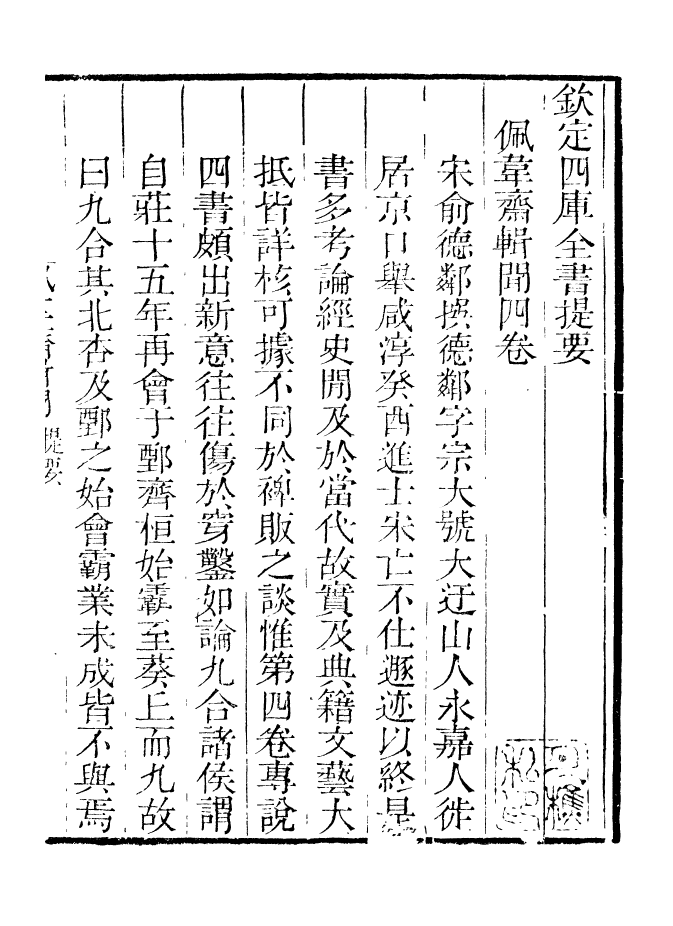 欽定四庫全書提要
佩韋齋輯聞四卷
宋俞德鄰撰德鄰字宗大號大迂山人永嘉人徙
居京口舉咸淳癸酉進士宋亡不仕遯迹以終是
書多考論經史閒及於當代故實及典籍文藝大
抵皆詳核可據不同於稗販之談惟第四卷專說
四書頗出新意往往傷於穿鑿如論九合諸侯謂
自莊十五年再會于鄄齊桓始霸至葵丘而九故
曰九合其北杏及鄄之始會霸業未成皆不與焉
提要